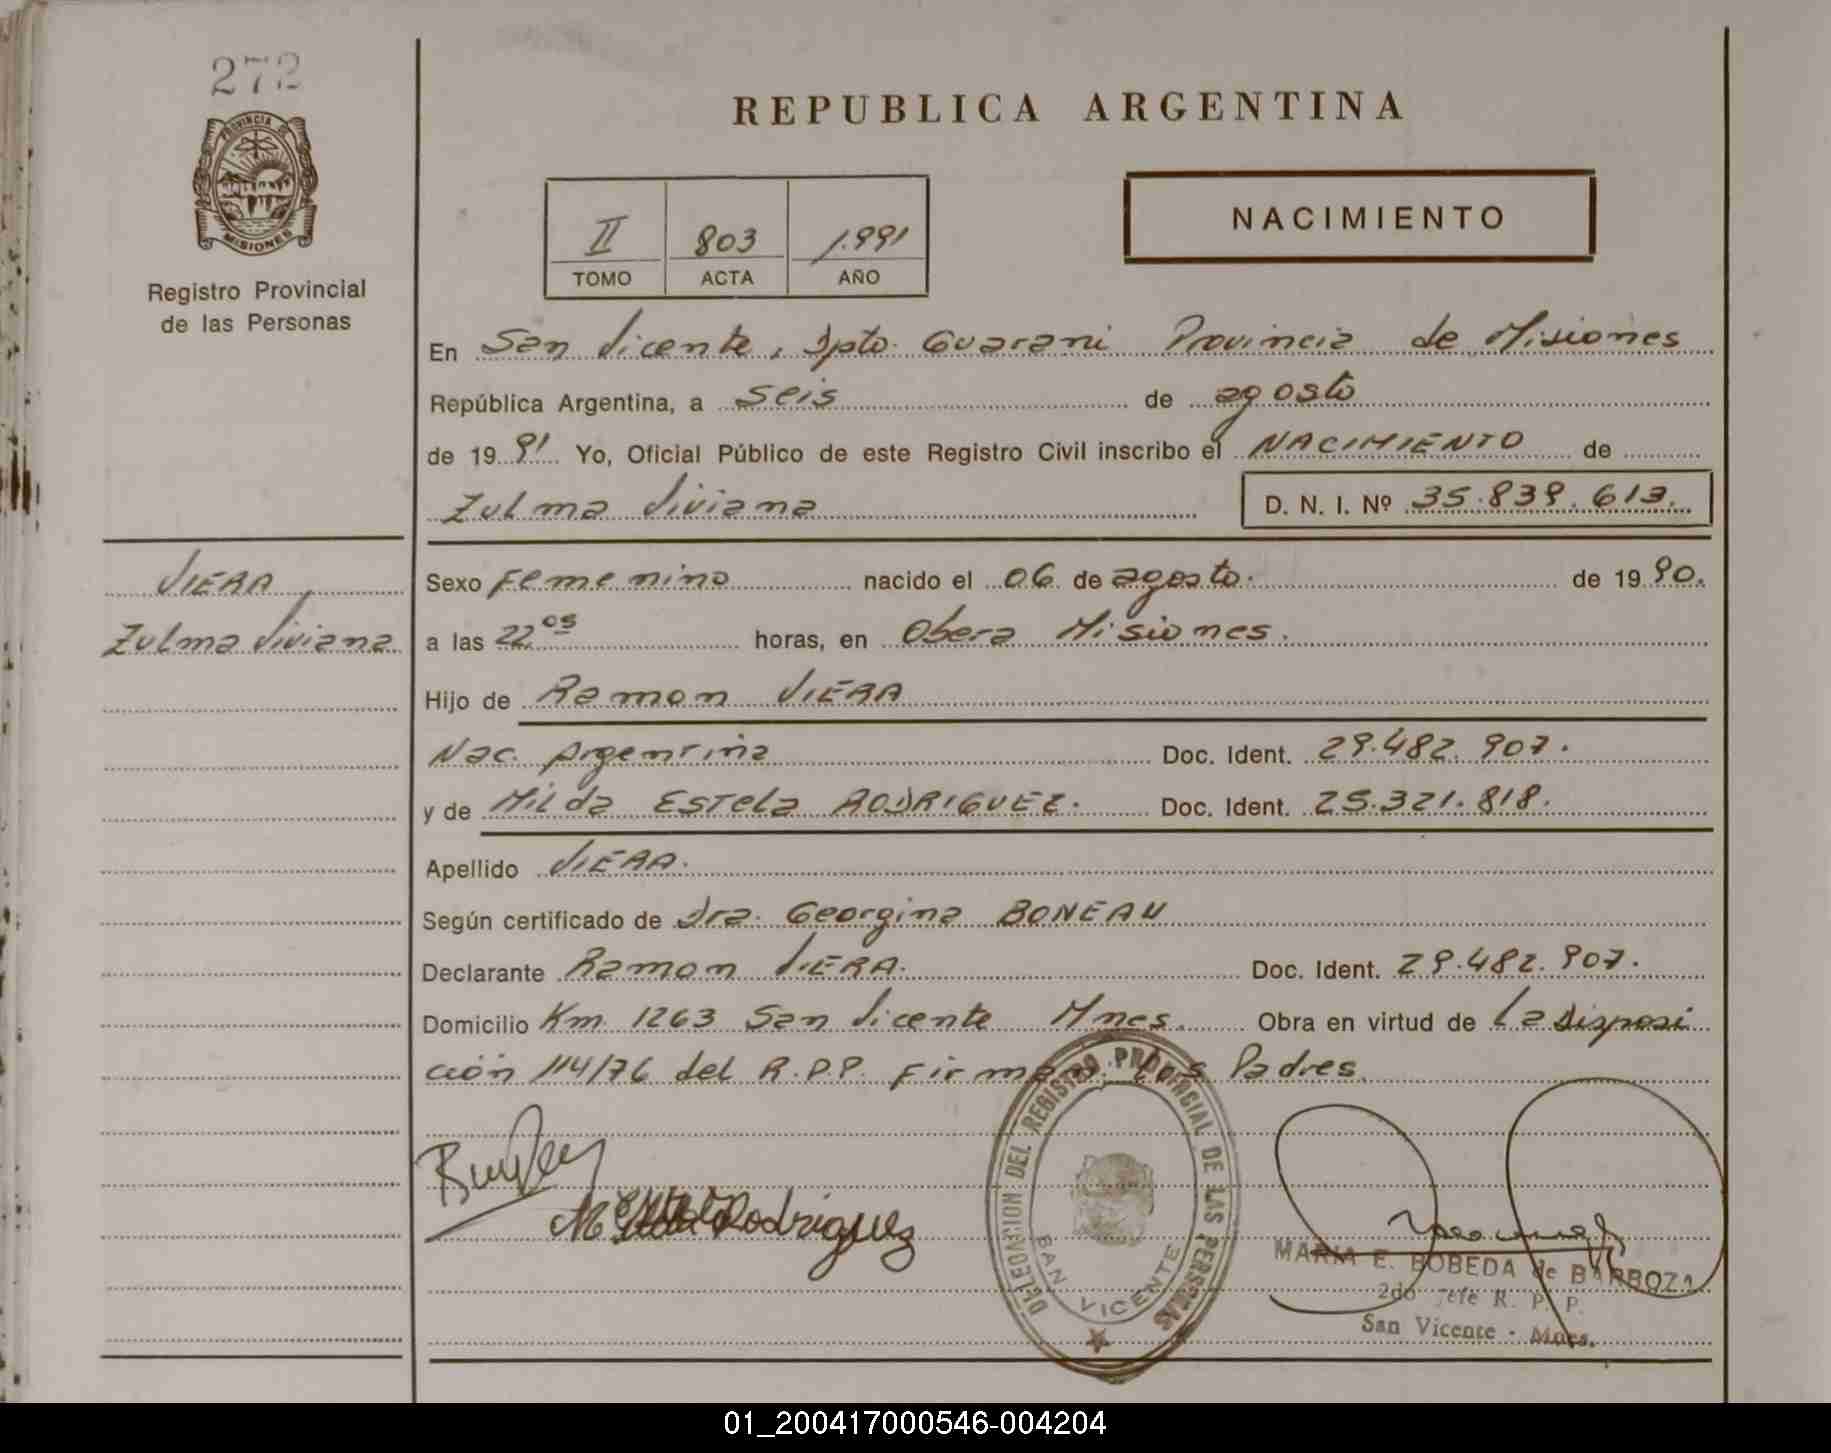 272
PROVINCIA DE
MISIONES
Registro Provincial
de las Personas
REPUBLICA ARGENTINA
II 803 1.991
TOMO ACTA AÑO
NACIMIENTO
En San Vicente, Dpto. Guarani Provincia de Misiones
República Argentina, a seis de agosto
de 1991 Yo, Oficial Público de este Registro Civil inscribo el NACIMIENTO de
Zulma Viviana D. N. I. Nº 35.839.613.
VIERA
Zulma Viviana
Sexo Femenino nacido el 06 de agosto. de 1990.
a las 22 05 horas, en Obera Misiones.
Hijo de Ramon VIERA
Nac. Argentina Doc. Ident. 29.482.907.
y de Milda Estela RODRIGUEZ. Doc. Ident. 25.321.818.
Apellido VIERA.
Según certificado de Dra. Georgina BONEAU
Declarante Ramon VIERA. Doc. Ident. 29.482.907.
Domicilio Km. 1263 San Vicente Mnes. Obra en virtud de la Disposi
ción 114/76 del R.P.P. Firman los Padres.
Rodriguez
DELEGACION DEL REGISTRO PROVINCIAL DE LAS PERSONAS
SAN VICENTE
MARIA E. BOBEDA de BARBOZA
2do Jefe R. P. P.
San Vicente - Mnes.
01_200417000546-004204